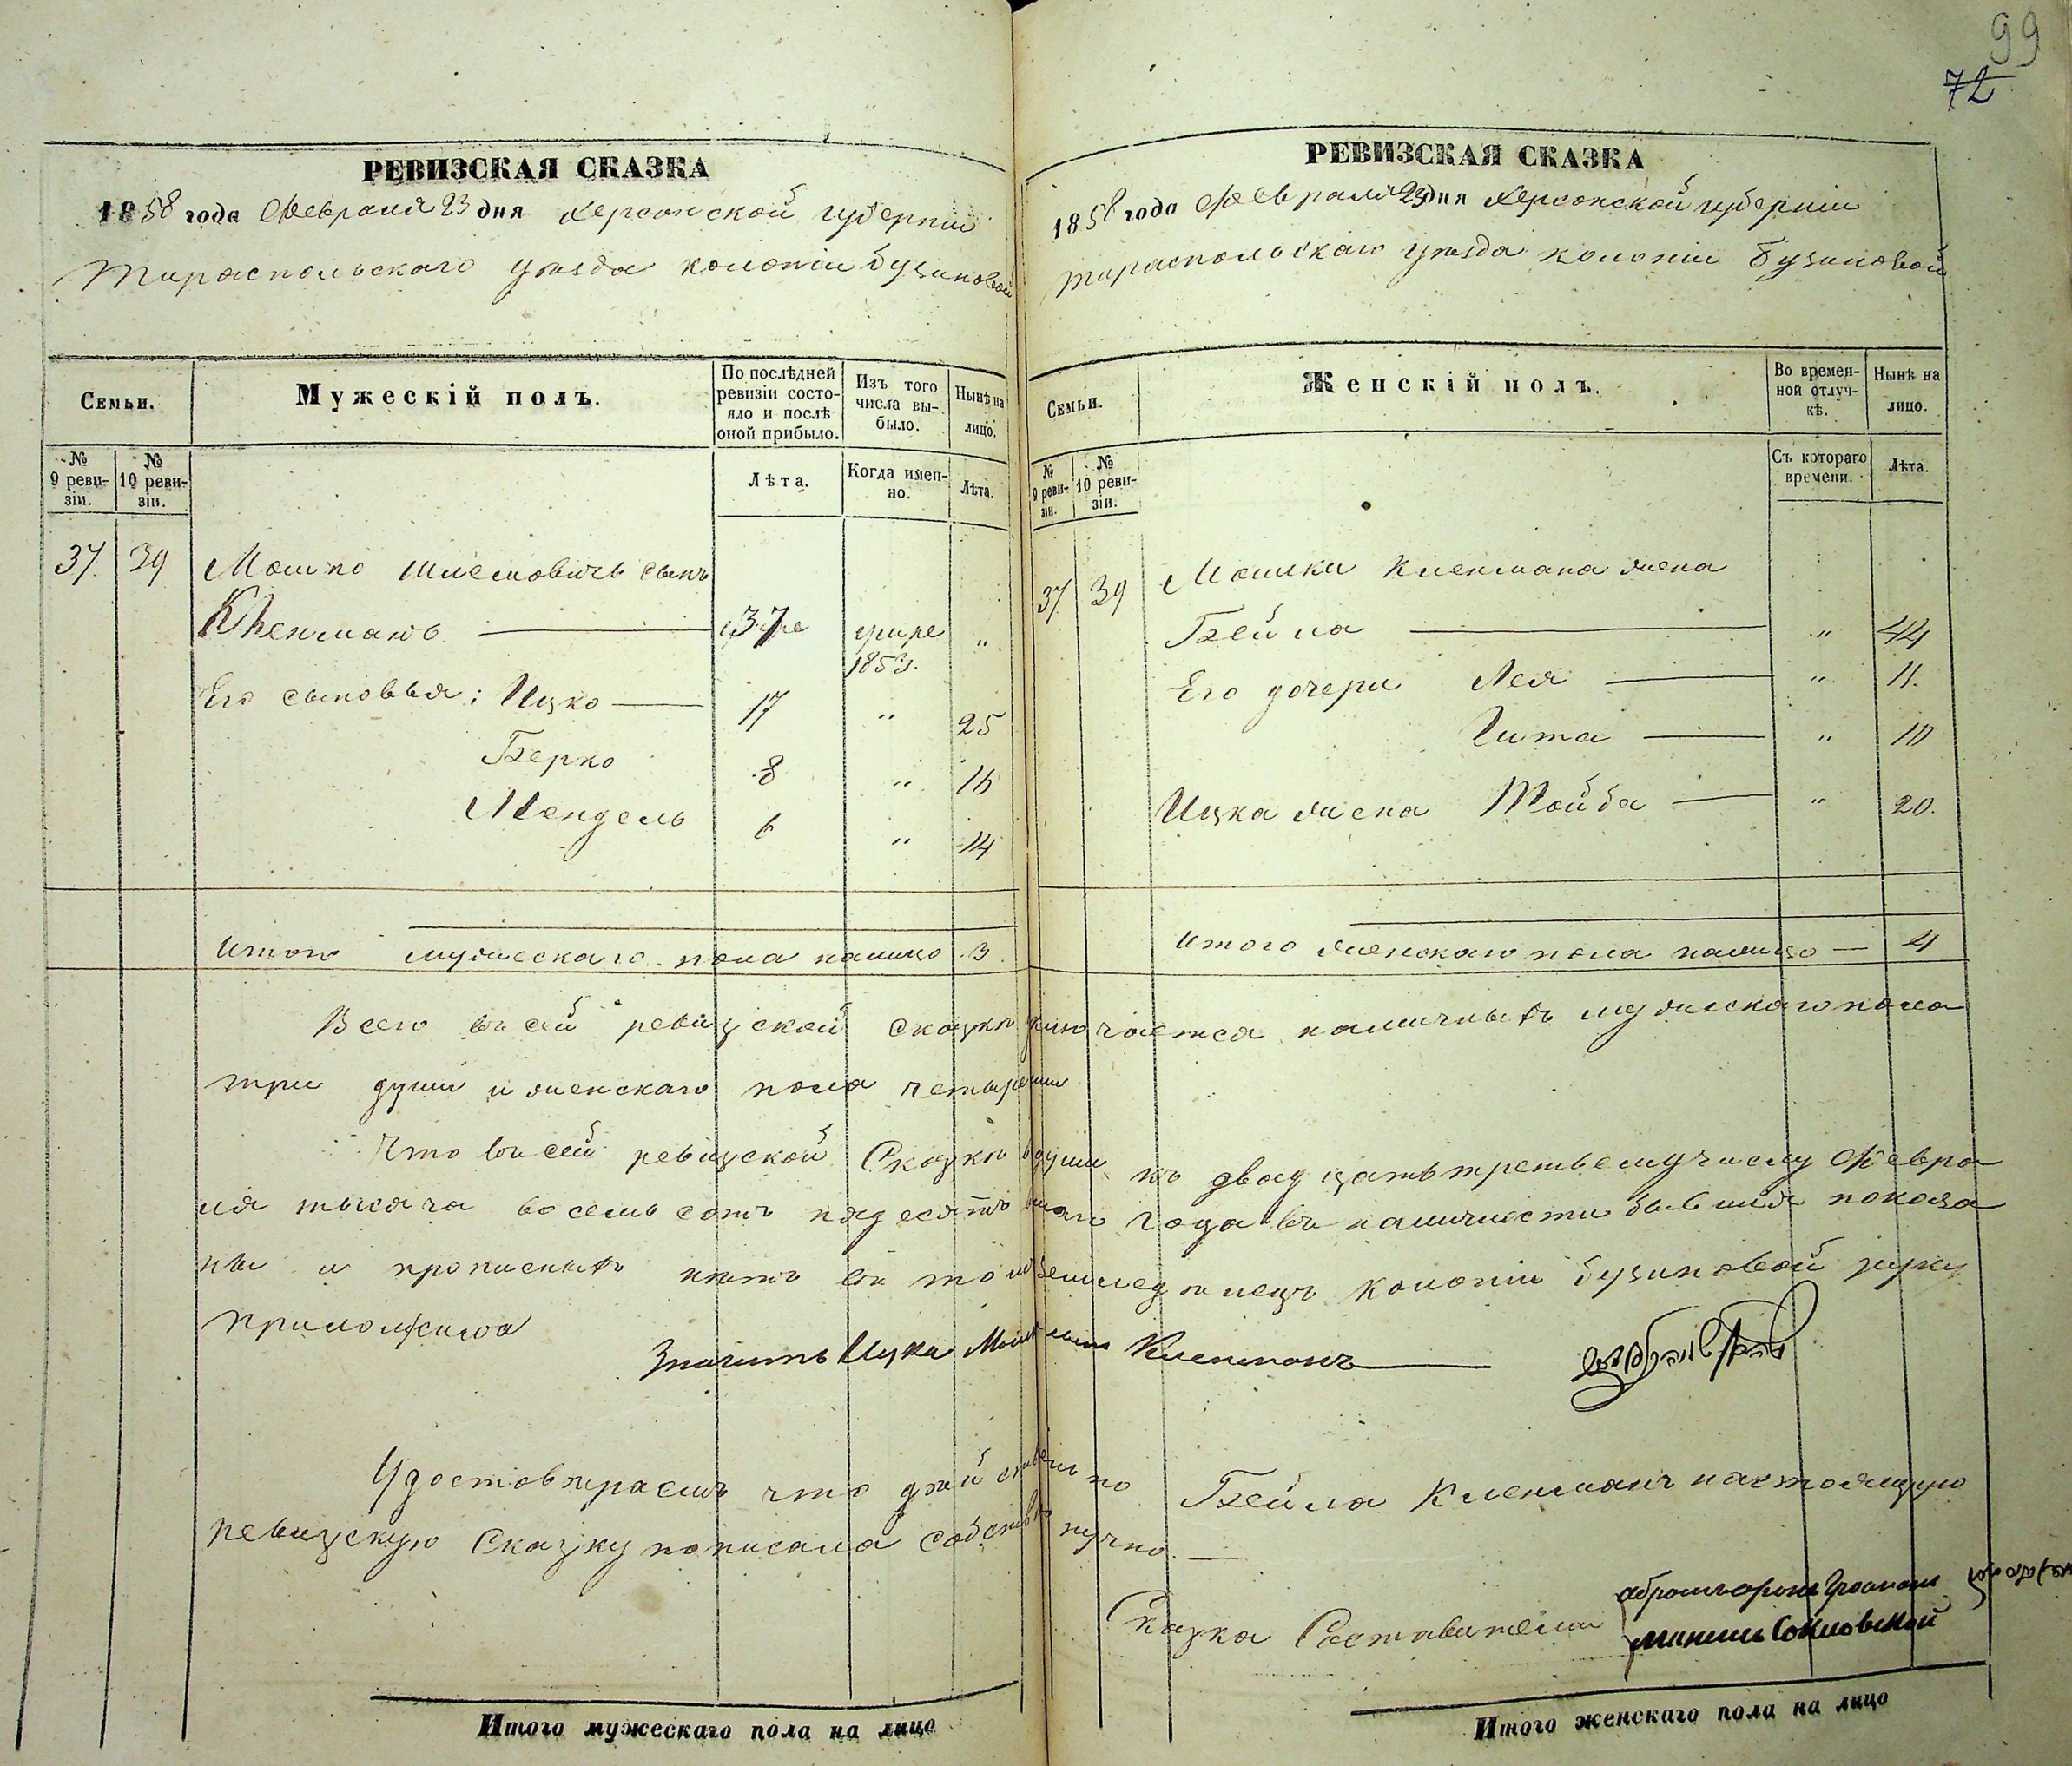 99
72
РЕВИЗСКАЯ СКАЗКА
1858 года Февраля 23 дня Херсонской губерніи
Тираспольскаго уѣзда колоніи Бузиновой
Семьи.
Мужескій полъ.
По послѣдней ревизіи состояло и послѣ оной прибыло.
Изъ того числа выбыло.
Нынѣ на лицо.
№ 9 ревизіи.
№ 10 ревизіи.
Лѣта.
Когда именно.
Лѣта.
37 39 Мошко сынъ
Кленманъ 37 умре "
1853.
Его сыновья: Ицко 17 " 25
Берко 8 " 16
Мендель 6 " 14
Итого мужескаго пола налицо 3
РЕВИЗСКАЯ СКАЗКА
1858 года Февраля 23 дня Херсонской губерніи
Тираспольскаго уѣзда колоніи Бузиновой
Семьи.
Женскій полъ.
Во временной отлучкѣ.
Нынѣ на лицо.
№ 9 ревизіи.
№ 10 ревизіи.
Съ котораго времени.
Лѣта.
37 39 Мошки Кленмана жена
Бейла " 44
Его дочери Лея " 11.
Гита " 10
Ицка жена Тойба " 20.
Итого женскаго пола налицо 4
Всего въ сей ревизской сказкѣ наличныхъ мужескаго пола
три души и женскаго пола четыре души
Что въ сей ревизской Сказкѣ души къ двадцать третьему числу Февра
ля тысяча восемь сотъ года въ наличности бывшія показа
ны и прописныхъ нѣтъ въ томъ земледѣлецъ колоніи Бузиновой руку
приложила
Значить Ицка Кленманъ
Удостовѣряемъ что дѣйствительно Бейла Кленманъ настоящую
ревизскую Сказку подписала собственоручно.
Сказка Составители
Соколовской
Итого мужескаго пола на лицо
Итого женскаго пола на лицо